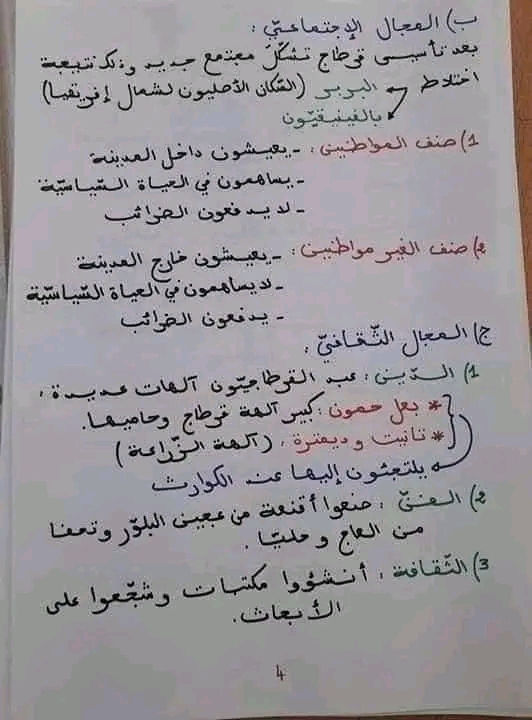 ب) المجال الإجتماعيّ :
بعد تأسيس قرطاج تشكّل مجتمع جديد وذلك نتيجة
اختلاط البربر (السّكان الأصليون لشمال إفريقيا)
بالفينيقيّون
1) صنف المواطنين : - يعيشون داخل المدينة
- يساهمون في الحياة السّياسيّة
- لا يدفعون الضرائب
2) صنف الغير مواطنين : - يعيشون خارج المدينة
- لا يساهمون في الحياة السّياسيّة
- يدفعون الضرائب
ج) المجال الثّقافيّ :
1) الدّين : عبد القرطاجيّون آلهات عديدة :
* بعل حمون : كبير آلهة قرطاج وحاميها.
* تانيت وديمترة : (آلهة الزّراعة)
يلتجئون إليها عند الكوارث
2) الفنّ : صنعوا أقنعة من عجين البلّور وتحفا
من العاج وحليّا .
3) الثّقافة : أنشؤوا مكتبات وشجّعوا على
الأبحاث.
4